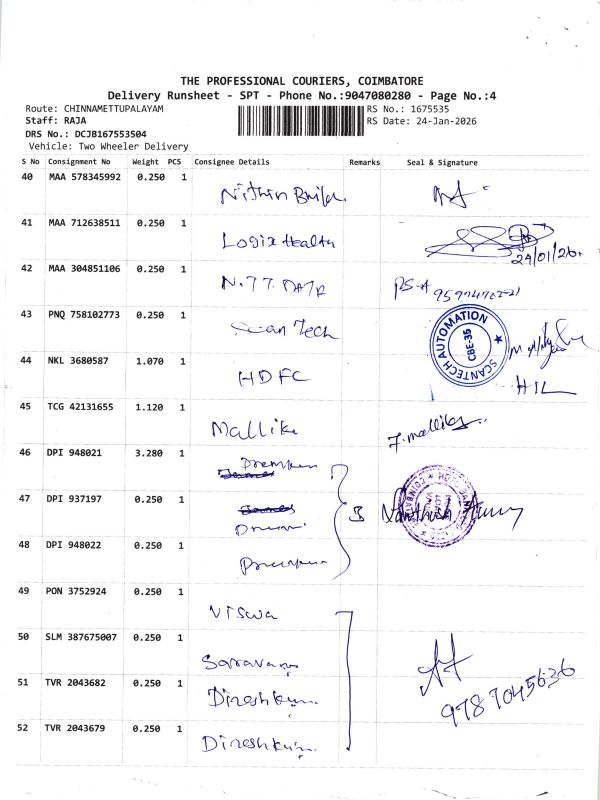 THE PROFESSIONAL COURIERS, COIMBATORE
Delivery Runsheet - SPT - Phone No.:9047080280 - Page No.:4
Route: CHINNAMETTUPALAYAM
RS No.: 1675535
Staff: RAJA
RS Date: 24-Jan-2026
DRS No.: DCJB167553504
Vehicle: Two Wheeler Delivery
S No Consignment No Weight PCS Consignee Details Remarks Seal & Signature
40 MAA 578345992 0.250 1 Nithin
41 MAA 712638511 0.250 1 Logix Health
24/01/26.
42 MAA 304851106 0.250 1 N.TT. DATA
43 PNQ 758102773 0.250 1 Scan Tech
SCANTECH AUTOMATION CBE-35
44 NKL 3680587 1.070 1 HDFC
45 TCG 42131655 1.120 1 Mallika
46 DPI 948021 3.280 1
47 DPI 937197 0.250 1
3
48 DPI 948022 0.250 1
49 PON 3752924 0.250 1 Viswa
50 SLM 387675007 0.250 1 Saravana
51 TVR 2043682 0.250 1 Dineshkum
9787045636
52 TVR 2043679 0.250 1 Dineshkum